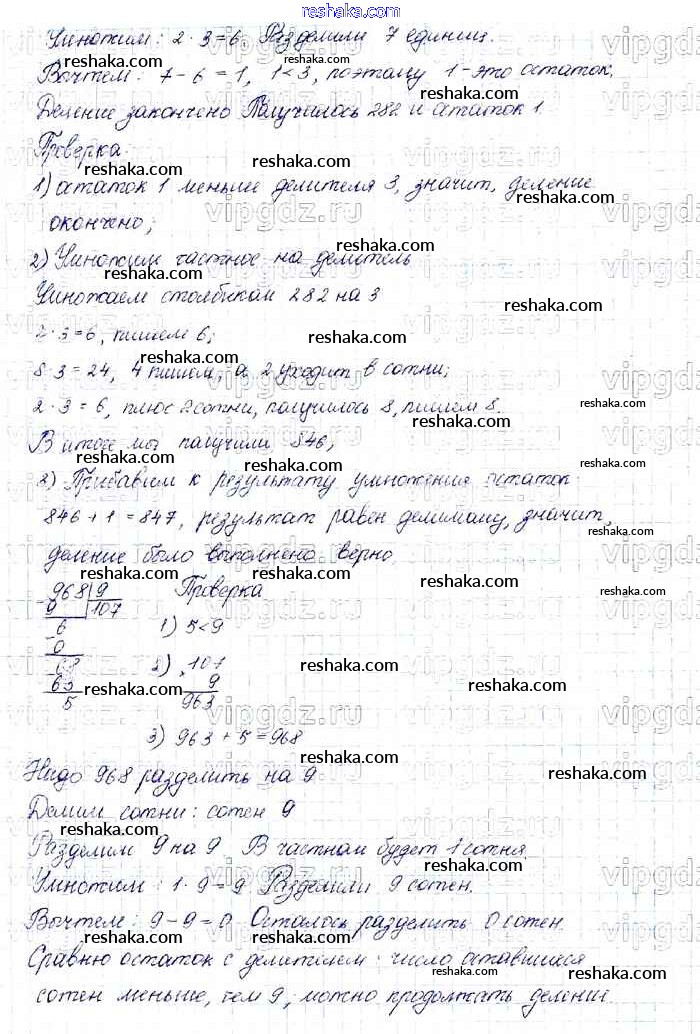 reshaka.com
Умножим: 2·3=6. Разделили 7 единиц.
Вычтем: 7-6=1, 1<3, поэтому 1-это остаток.
Деление закончено Получилось 282 и остаток 1.
Проверка.
1) остаток 1 меньше делителя 3, значит, деление
окончено;
2) Умножим частное на делитель
Умножаем столбиком 282 на 3
2·3=6, пишем 6;
8·3=24, 4 пишем, а 2 уходит в сотни;
2·3=6, плюс 2 сотни, получилось 8, пишем 8.
В итоге мы получили 846;
3) Прибавим к результату умножения остаток:
846+1=847, результат равен делимому, значит,
деление было выполнено верно.
968 9 Проверка
9 107
6 1) 5<9
0
68 2) 107
63 9
5 963
3) 963+5=968
Надо 968 разделить на 9
Делим сотни: сотен 9
Разделим 9 на 9 В частном будет 1 сотня.
Умножим: 1·9=9 Разделили 9 сотен.
Вычтем: 9-9=0. Осталось разделить 0 сотен.
Сравню остаток с делителем: число оставшихся
сотен меньше, чем 9, можно продолжать деление.